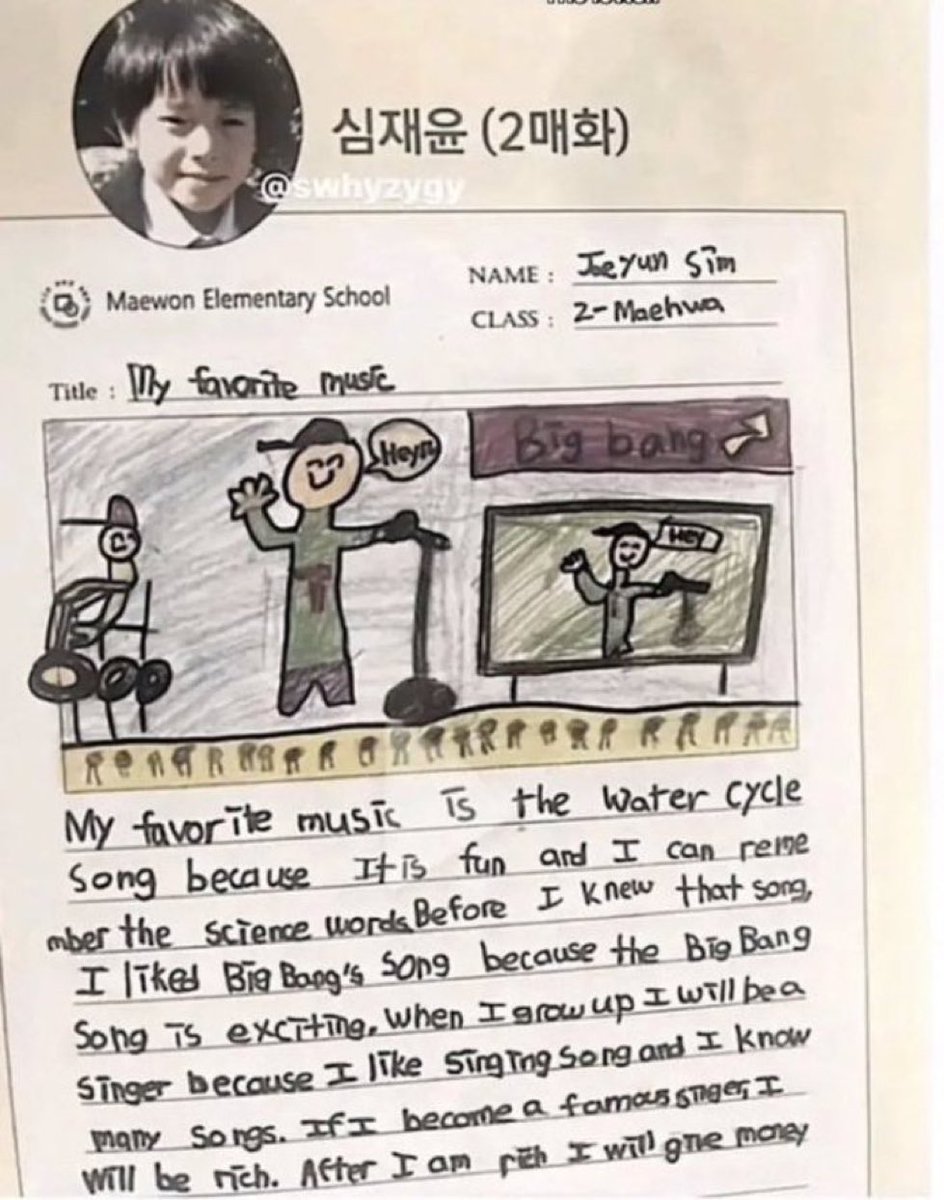 심재윤 (2매화)
@swhyzygy
Maewon Elementary School
NAME : Jaeyun Sim
CLASS : 2-Maehwa
Title : My favorite music
Hey
Big bang
Hey
My favorite music is the water cycle
Song because It is fun and I can reme
mber the science words. Before I knew that song,
I liked Big Bang's song because the Big Bang
Song is exciting. When I grow up I will be a
Singer because I like Singing Song and I know
many Songs. If I become a famous singer, I
will be rich. After I am rich I will give money